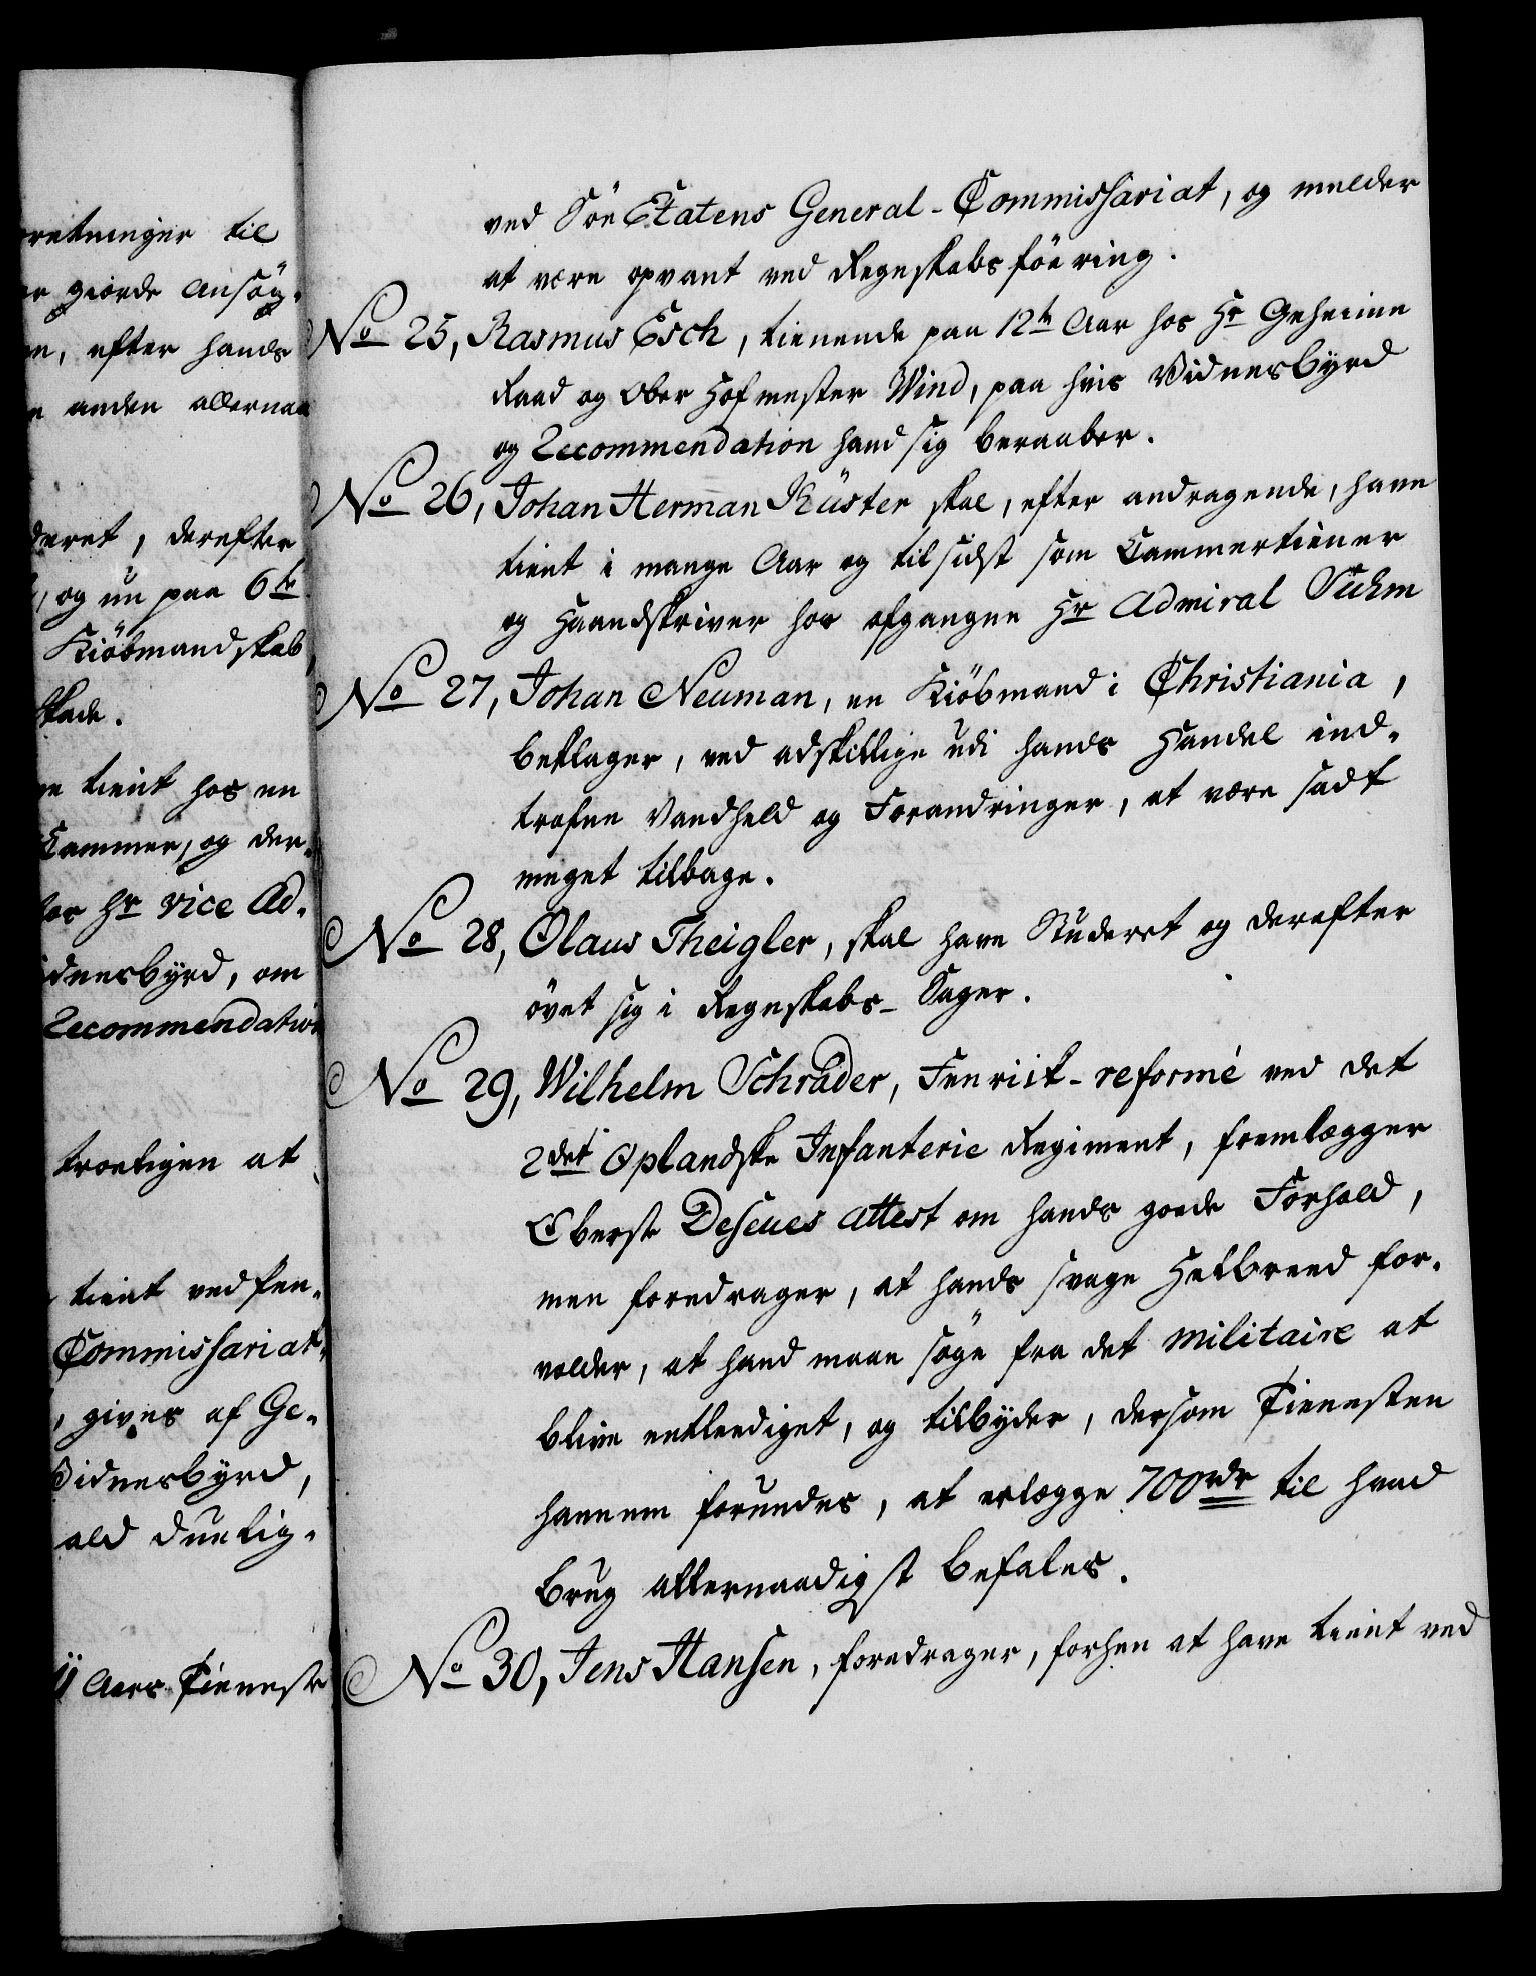 retninger til
giorde Ansøg-
efter hands
anden allernaa
deret, derefter
og nu paa 6te
Kiöbmandskab
tient hos en
Cammer, og der-
hos Hr Vice Ad-
idnesbyrd, om
Recommendation
troeligen at
tient ved Fen-
Commissariat
gives af Ge-
Vidnesbyrd,
ald duelig-
Aars Tieneste
ved Söe Etatens General-Commissariat, og melder
at være opvant ved Regnskabsföering.
No 25, Rasmus Esch, tienende paa 12te Aar hos Hr Geheime
Raad og Ober Hofmester Wind, paa hvis Vidnesbyrd
og Recommendation hand sig beraaber.
No 26, Johan Herman Küster skal, efter andragende, have
tient i mange Aar og tilsidst som Cammertiener
og Haandskriver hos afgangne Hr Admiral Suhm
No 27, Johan Neuman, en Kiöbmand i Christiania,
beklager, ved adskillige udi hands Handel ind-
trefne Vandheld og Forandringer, at være sadt
meget tilbage.
No 28, Olaus Theigler, skal have Studeret og derefter
övet sig i Regnskabs-Sager.
No 29, Wilhelm Schräder, Fenrick-reformé ved det
2det Oplandske Infanterie Regiment, fremlægger
Oberste Deseues Attest om hands goede Forhold,
men foredrager, at hands svage Helbreed for-
volder, at hand maae söge fra det Militaire at
blive entlediget, og tilbyder, dersom Tienesten
hannem forundes, at erlægge 700 rdr til hvad
brug allernaadigst befales.
No 30, Jens Hansen, foredrager, forhen at have tient ved